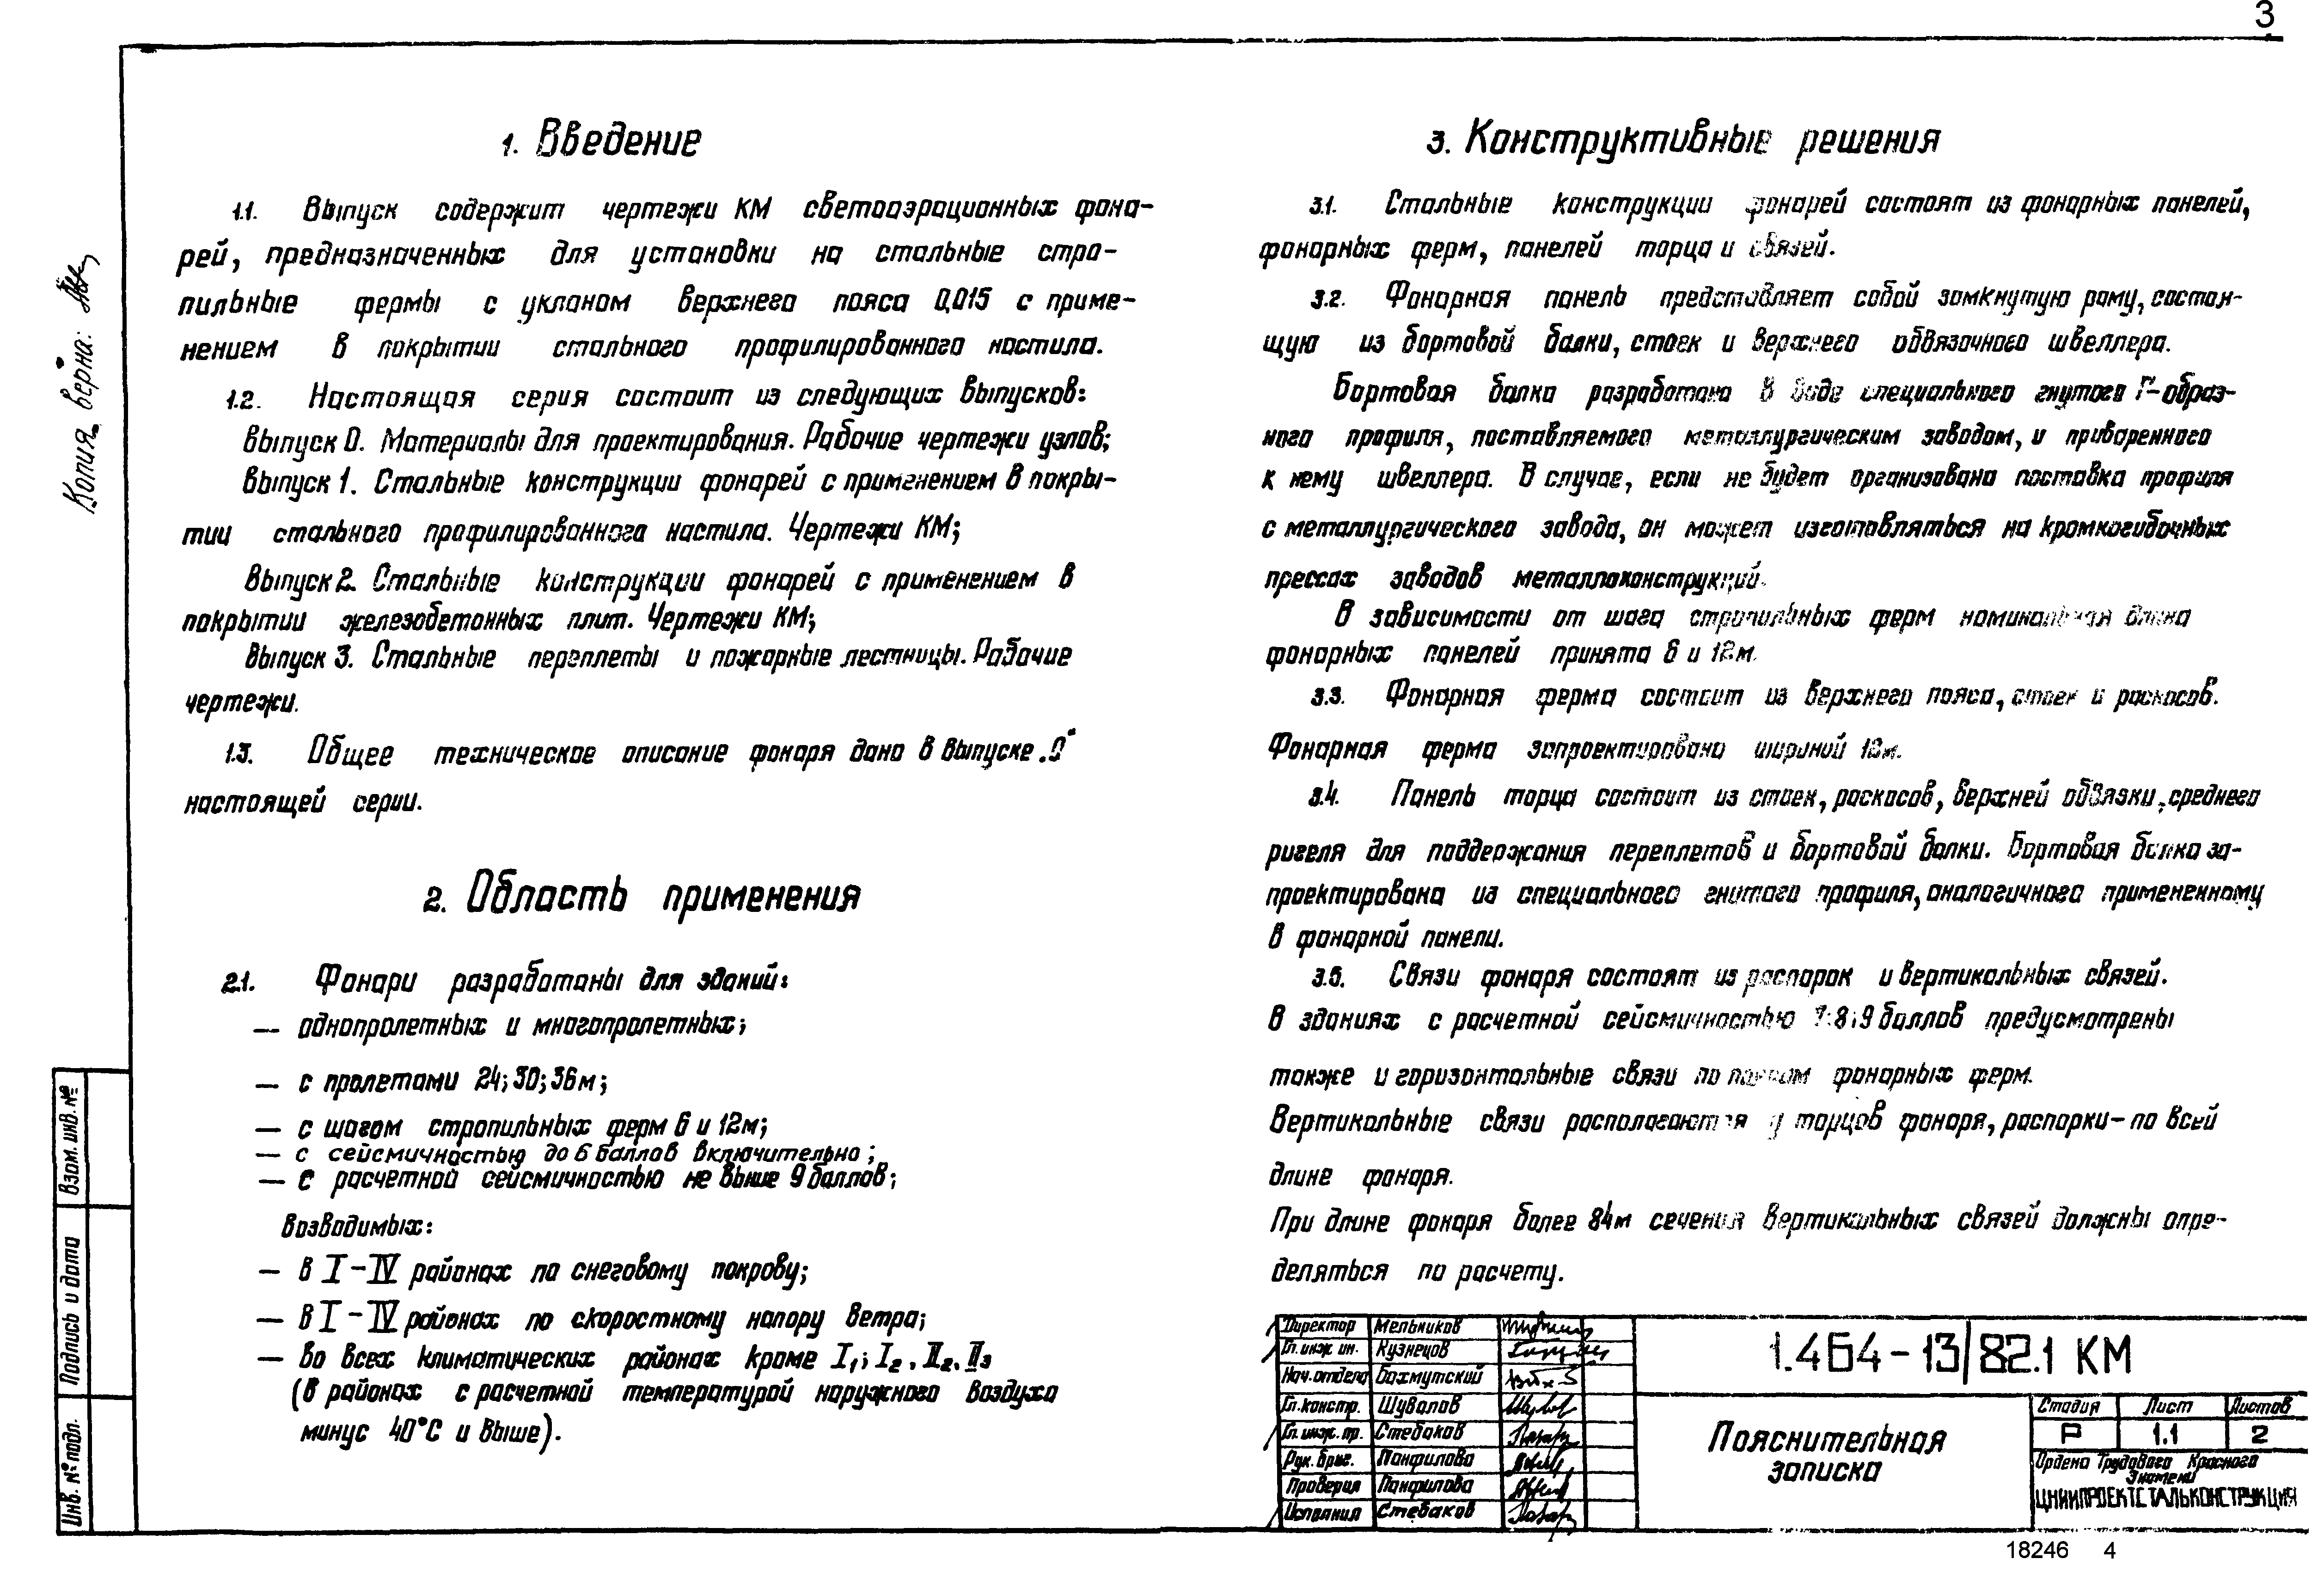 3
1. Введение
1.1. Выпуск содержит чертежи КМ светоаэрационных фона-
рей, предназначенных для установки на стальные стро-
пильные фермы с уклоном верхнего пояса 0,015 с приме-
нением в покрытии стального профилированного настила.
1.2. Настоящая серия состоит из следующих выпусков:
Выпуск 0. Материалы для проектирования. Рабочие чертежи узлов;
Выпуск 1. Стальные конструкции фонарей с применением в покры-
тии стального профилированного настила. Чертежи КМ;
Выпуск 2. Стальные конструкции фонарей с применением в
покрытии железобетонных плит. Чертежи КМ;
Выпуск 3. Стальные переплеты и пожарные лестницы. Рабочие
чертежи.
1.3. Общее техническое описание фонаря дано в выпуске „0“
настоящей серии.
2. Область применения
2.1. Фонари разработаны для зданий:
— однопролетных и многопролетных;
— с пролетами 24; 30; 36м;
— с шагом стропильных ферм 6 и 12м;
— с сейсмичностью до 6 баллов включительно;
— с расчетной сейсмичностью не выше 9 баллов;
возводимых:
— в I-IV районах по снеговому покрову;
— в I-IV районах по скоростному напору ветра;
— во всех климатических районах кроме I₁; I₂, II₂, II₃
(в районах с расчетной температурой наружного воздуха
минус 40°С и выше).
3. Конструктивные решения
3.1. Стальные конструкции фонарей состоят из фонарных панелей,
фонарных ферм, панелей торца и связей.
3.2. Фонарная панель представляет собой замкнутую раму, состоя-
щую из бортовой балки, стоек и верхнего обвязочного швеллера.
Бортовая балка разработана в виде специального гнутого Г-образ-
ного профиля, поставляемого металлургическим заводом, и приваренного
к нему швеллера. В случае, если не будет организована поставка профиля
с металлургического завода, он может изготовляться на кромкогибочных
прессах заводов металлоконструкций.
В зависимости от шага стропильных ферм номинальная длина
фонарных панелей принята 6 и 12м.
3.3. Фонарная ферма состоит из верхнего пояса, стоек и раскосов.
Фонарная ферма запроектирована шириной 12м.
3.4. Панель торца состоит из стоек, раскосов, верхней обвязки, среднего
ригеля для поддержания переплетов и бортовой балки. Бортовая балка за-
проектирована из специального гнутого профиля, аналогичного примененному
в фонарной панели.
3.5. Связи фонаря состоят из распорок и вертикальных связей.
В зданиях с расчетной сейсмичностью 7; 8; 9 баллов предусмотрены
также и горизонтальные связи по поясам фонарных ферм.
Вертикальные связи располагаются у торцов фонаря, распорки- по всей
длине фонаря.
При длине фонаря более 84м сечения вертикальных связей должны опре-
деляться по расчету.
Копия верна:
Взам. инв. №
Подпись и дата
Инв. № подл.
Директор Мельников
Гл. инж. ин. Кузнецов
Нач. отдела Бахмутский
Гл. констр. Шувалов
Гл. инж. пр. Стебаков
Рук. бриг. Панфилова
Проверил Панфилова
Исполнил Стебаков
1.464-13/82.1 КМ
Пояснительная
записка
Стадия Лист Листов
Р 1.1 2
Ордена Трудового Красного
Знамени
ЦНИИПРОЕКТСТАЛЬКОНСТРУКЦИЯ
18246 4